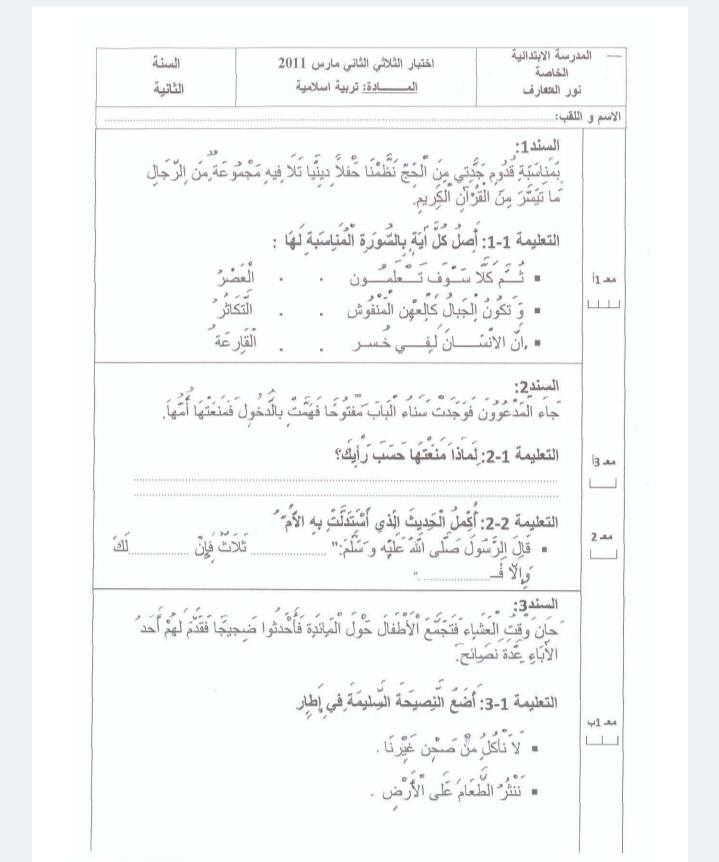 المدرسة الابتدائية
الخاصة
نور المعارف
اختبار الثلاثي الثاني مارس 2011
المـــــادة: تربية اسلامية
السنة
الثانية
الاسم و اللقب:
السند1:
بِمُنَاسَبَةِ قُدُومِ جَدَّتِي مِنَ الْحَجِّ نَظَّمْنَا حَفْلاً دِينِيًّا تَلَا فِيهِ مَجْمُوعَةٌ مِنَ الرِّجَالِ
مَا تَيَسَّرَ مِنَ الْقُرْآنِ الْكَرِيمِ.
التعليمة 1-1: أَصِلُ كُلَّ آيَةٍ بِالسُّورَةِ الْمُنَاسَبَةِ لَهَا :
▪ ثُـمَّ كَلَّا سَـوْفَ تَـعْلَمُــون . . الْعَصْرُ
▪ وَ تَكُونُ الْجِبَالُ كَالْعِهْنِ الْمَنْفُوش . . التَّكَاثُرُ
▪ إِنَّ الاِنْسَــــانَ لَفِــي خُسر . . الْقَارِعَةُ
معـ1أ
السند2:
جَاءَ الْمَدْعُوُّونَ فَوَجَدَتْ سَنَاءُ الْبَابَ مَفْتُوحًا فَهَمَّتْ بِالدُّخُولِ فَمَنَعَتْهَا أُمُّهَا.
التعليمة 1-2: لِمَاذَا مَنَعَتْهَا حَسَبَ رَأْيِكَ؟
معـ3أ
التعليمة 2-2: أُكْمِلُ الْحَدِيثَ الَّذِي اسْتَدَلَّتْ بِهِ الأُمُّ
▪ قَالَ الرَّسُولُ صَلَّى اللَّهُ عَلَيْهِ وَ سَلَّمَ:" ............ ثَلَاثٌ فَإِنْ .......... لَكَ
وَإِلَّا فَـ............ ."
معـ2
السند3:
حَانَ وَقْتُ الْعَشَاءِ فَتَجَمَّعَ الأَطْفَالُ حَوْلَ الْمَائِدَةِ فَأَحْدَثُوا ضَجِيجًا فَقَدَّمَ لَهُمْ أَحَدُ
الآبَاءِ عِدَّةَ نَصَائِحَ.
التعليمة 1-3: أَضَعُ النَّصِيحَةَ السَّلِيمَةَ فِي إِطَارٍ
معـ1ب
▪ لَا نَأْكُلُ مِنْ صَحْنِ غَيْرِنَا .
▪ نَنْثُرُ الطَّعَامَ عَلَى الْأَرْضِ .